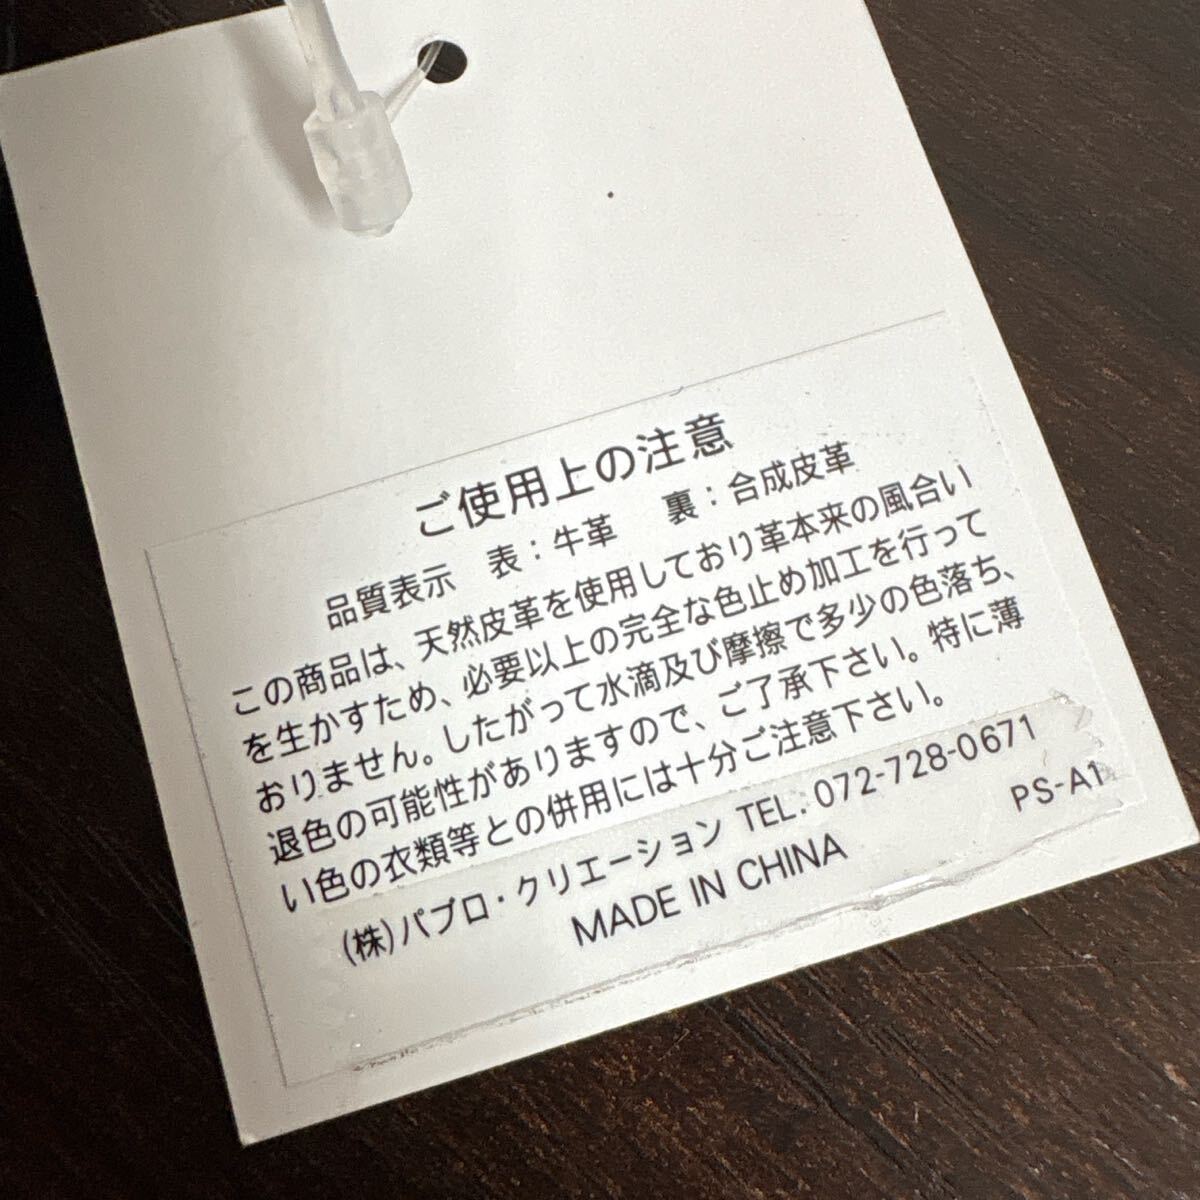 ご使用上の注意
品質表示　表：牛革　裏：合成皮革
この商品は、天然皮革を使用しており革本来の風合い
を生かすため、必要以上の完全な色止め加工を行って
おりません。したがって水滴及び摩擦で多少の色落ち、
退色の可能性がありますので、ご了承下さい。特に薄
い色の衣類等との併用には十分ご注意下さい。
(株)パブロ・クリエーション TEL. 072-728-0671
MADE IN CHINA　PS-A1